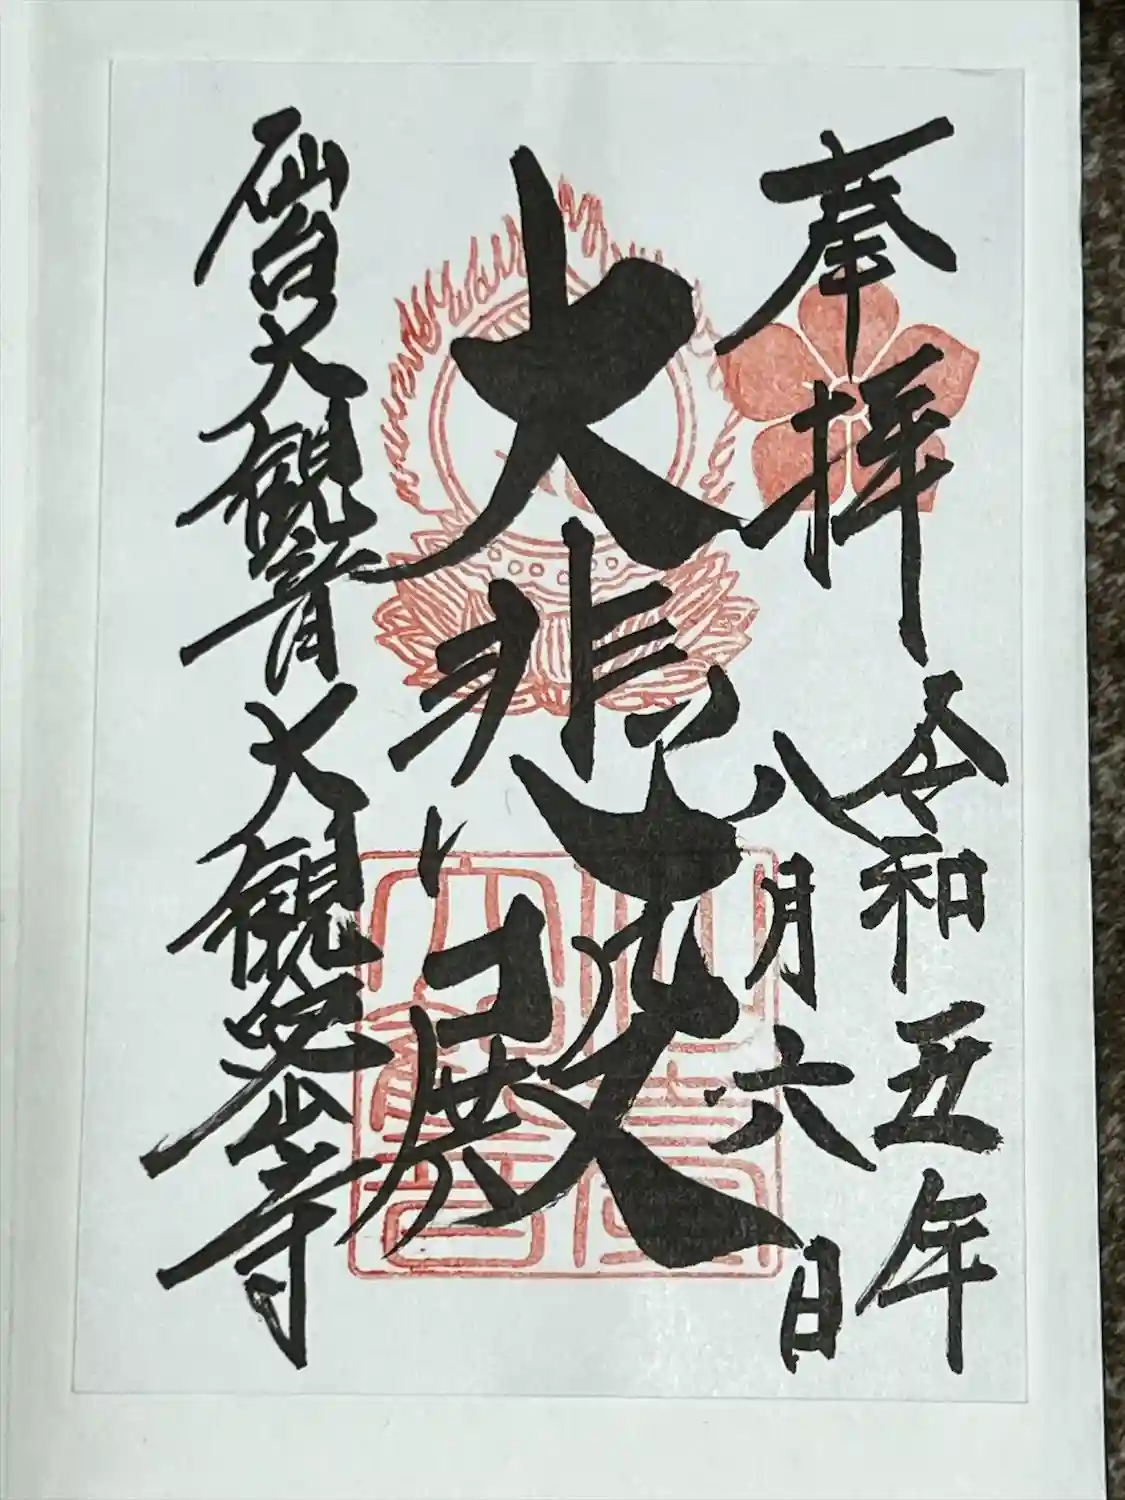 奉拝
令和五年
八月六日
大悲殿
仙台大観音 大観密寺